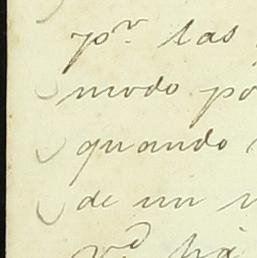 pr. las
modo po
quando
de um
Vd. há